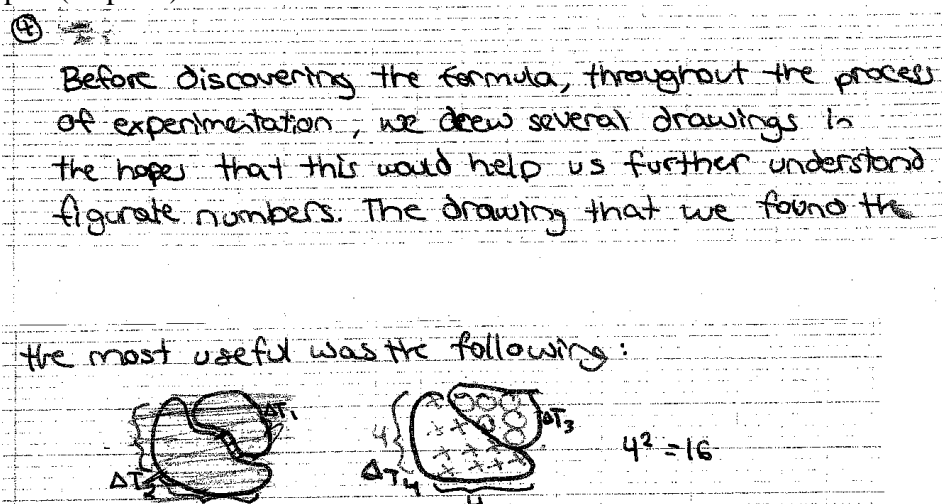 4
Before discovering the formula, throughout the process
of experimentation, we drew several drawings in
the hopes that this would help us further understand
figurate numbers. The drawing that we found the
the most useful was the following:
ΔT1
ΔT2
4
ΔT3
ΔT4
4
4² = 16